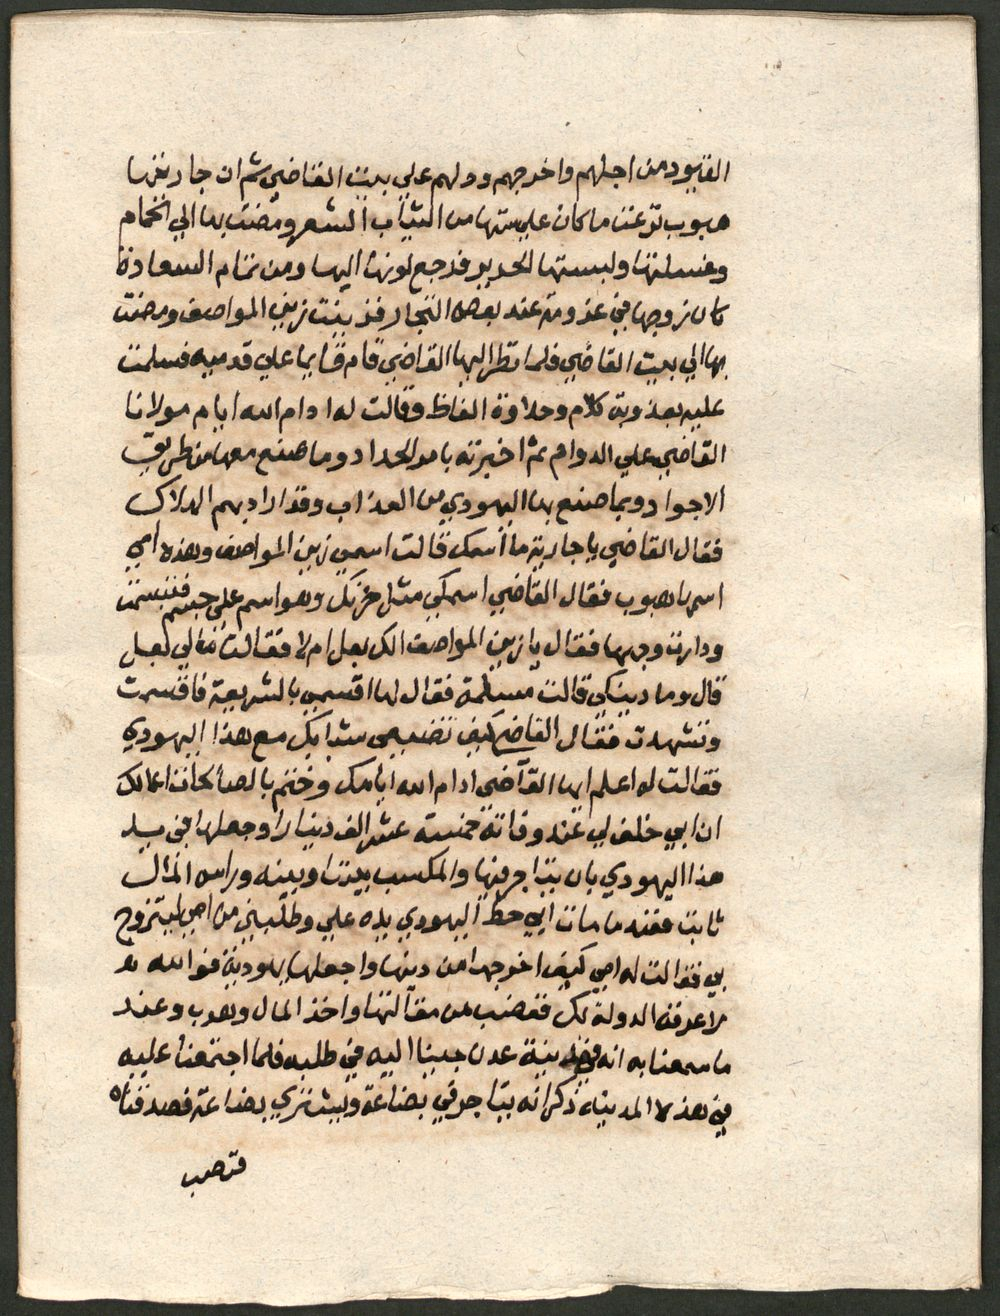 القيود من اجلهم واخرجهم ودلهم علي بيت القاضي ثم ان جاريتها
هبوب نزعت ما كان علي ستها من الثياب الشعر ومضت بها الي الحمام
وغسلتها ولبستها الحرير فرجع لونها اليها ومن تمام السعادة
كان زوجها في عزومة عند بعض التجار فزينت زين المواصف ومضت
بها الي بيت القاضي فلما نظر اليها القاضي قام قايما علي قدميه فسلمت
عليه بعذوبة كلام وحلاوة الفاظ وقالت له ادام الله ايام مولانا
القاضي علي الدوام ثم اخبرته بامر الحداد وما صنع معها من طريق
الاجواد وبما صنع بها اليهودي من العذاب وقد اراد بهم الهلاك
فقال القاضي يا جارية ما اسمك قالت اسمي زين المواصف وهذه امي
اسمها هبوب فقال القاضي اسمكي مثل حزنك وهو اسم علي جسم فتبسمت
ودارت وجهها فقال يا زين المواصف الك بعل ام لا فقالت ما لي بعل
قال وما دينكي قالت مسلمة فقال لها اقسمي بالشريعة فاقسمت
وتشهدت فقال القاضي كيف تضيعي شبابك مع هذا اليهودي
فقالت له اعلم ايها القاضي ادام الله ايامك وختم بالصالحات اعمالك
ان ابي خلف لي عند وفاته خمسة عشر الف دينارا وجعلها في يد
هذا اليهودي بان يتاجر فيها والمكسب بيننا وبينه وراس المال
ثابت فعندما مات ابي حط اليهودي يده علي وطلبني من امي ليتزوج
بي فقالت له امي كيف اخرجها من دينها واجعلها يهودية فوالله
لاعرفن الدولة بك فغضب من مقالتها واخذ المال وهرب وعند
ما سمعنا به انه في مدينة عدن جينا اليه في طلبه فلما اجتمعنا عليه
في هذه المدينة ذكر انه يتاجر في بضاعة ويشتري بضاعة فصدقناه